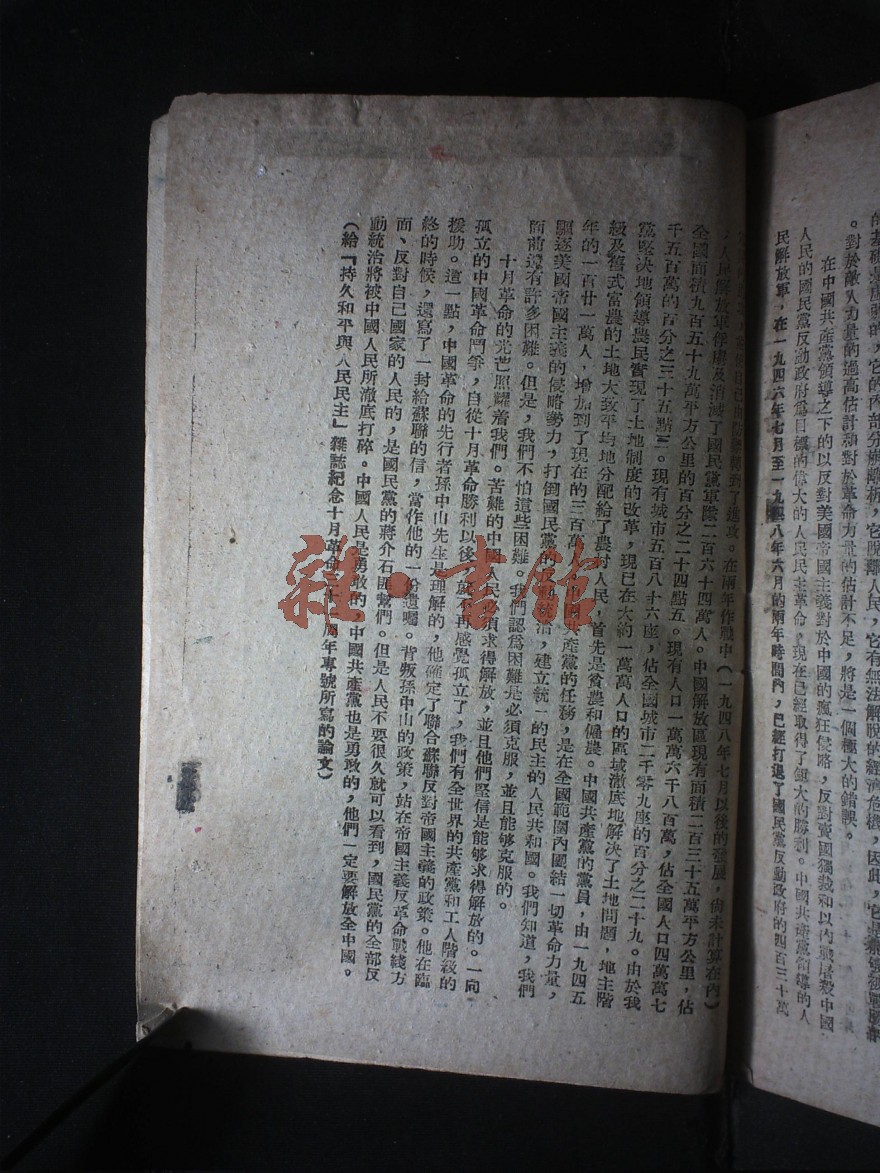 的基礎是虛弱的，它的內部分崩離析，它脫離人民，它有無法解脫的經濟危機，因此，它是
。對於敵人力量的過高估計和對於革命力量的估計不足，將是一個極大的錯誤。
在中國共產黨領導之下的以反對美國帝國主義對於中國的瘋狂侵略，反對賣國獨裁和以內戰屠殺中國
人民的國民黨反動政府爲目標的偉大的人民民主革命，現在已經取得了鉅大的勝利。中國共產黨領導的人
民解放軍，在一九四六年七月至一九四八年六月的兩年時間內，已經打退了國民黨反動政府的四百三十萬
到了進攻。在兩年作戰中（一九四八年七月以後的發展，尙未計算在內）
，人民解放軍俘虜及消滅了國民黨軍隊二百六十四萬人。中國解放區現有面積二百三十五萬平方公里，佔
全國面積九百五十九萬平方公里的百分之二十四點五。現有人口一萬萬六千八百萬，佔全國人口四萬萬七
千五百萬的百分之三十五點三。現有城市五百八十六座，佔全國城市二千零九座的百分之二十九。由於我
黨堅決地領導農民實現了土地制度的改革，現已在大約一萬萬人口的區域澈底地解決了土地問題，地主階
級及舊式富農的土地大致平均地分配給了農村人民，首先是貧農和僱農。中國共產黨的黨員，由一九四五
年的一百廿一萬人，增加到了現在的三百萬 國共產黨的任務，是在全國範圍內團結一切革命力量，
驅逐美國帝國主義的侵略勢力，打倒國民黨的 動統治，建立統一的民主的人民共和國。我們知道，我們
面前還有許多困難。但是，我們不怕這些困難。我們認爲困難是必須克服，並且能够克服的。
十月革命的光芒照耀着我們。苦難的中國人民必須求得解放，並且他們堅信是能够求得解放的。一向
孤立的中國革命鬥爭，自從十月革命勝利以後，就不再感覺孤立了，我們有全世界的共產黨和工人階級的
援助。這一點，中國革命的先行者孫中山先生是理解的，他確定了聯合蘇聯反對帝國主義的政策。他在臨
終的時候，還寫了一封給蘇聯的信，當作他的一份遺囑。背叛孫中山的政策，站在帝國主義反革命戰綫方
面、反對自己國家的人民的，是國民黨的蔣介石匪幫們。但是人民不要很久就可以看到，國民黨的全部反
動統治將被中國人民所澈底打碎。中國人民是勇敢的，中國共產黨也是勇敢的，他們一定要解放全中國。
（給『持久和平與人民民主』雜誌紀念十月革命三十一周年專號所寫的論文）
雜·書館